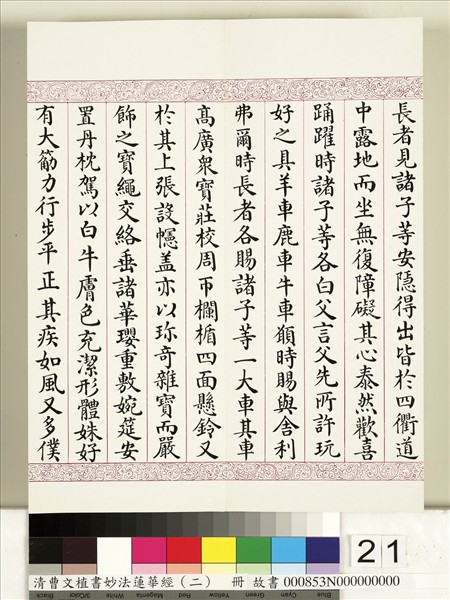 長者見諸子等安隱得出皆於四衢道
中露地而坐無復障礙其心泰然歡喜
踊躍時諸子等各白父言父先所許玩
好之具羊車鹿車牛車願時賜與舍利
弗爾時長者各賜諸子等一大車其車
高廣衆寶莊校周帀欄楯四面懸鈴又
於其上張設幰盖亦以珍奇雜寶而嚴
飾之寶繩交絡垂諸華瓔重敷婉筵安
置丹枕駕以白牛膚色充潔形體姝好
有大筋力行步平正其疾如風又多僕
21
清曹文植書妙法蓮華經（二） 冊 故書 000853N000000000
Black 3/Color White Magenta Red Yellow Green Cyan Blue